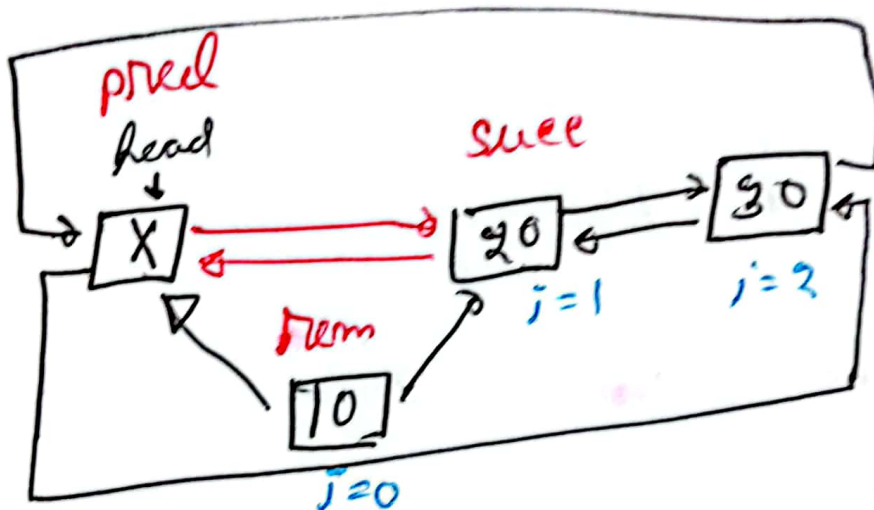 pred
head
succ
X
20
30
i=1
i=2
rem
10
i=0